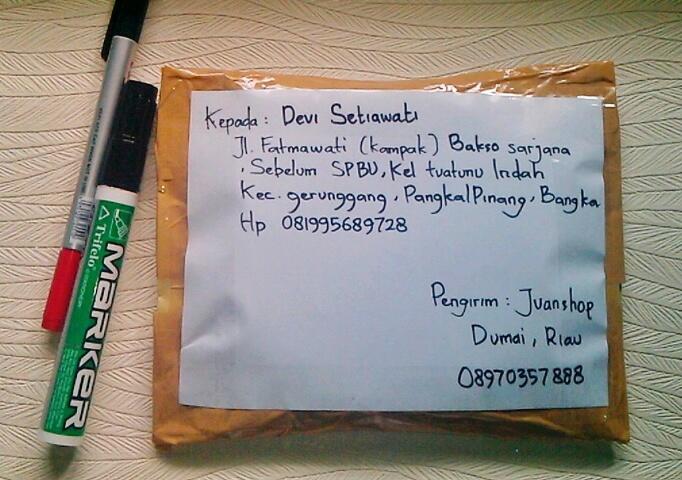 Kepada : Devi Setiawati
Jl. Fatmawati (kampak) Bakso sarjana
, Sebelum SPBU, Kel tuatunu Indah
Kec. gerunggang, PangkalPinang, Bangka
Hp 081995689728
Pengirim : Juanshop
Dumai, Riau
08970357888
Trifelo
MARKER